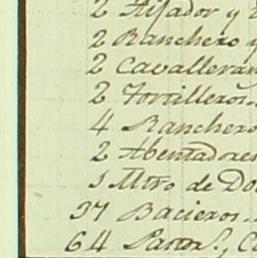 2 Aijador y
2 Ranchero y
2 Cavalleran
2 Tortilleros
4 Ranchero
2 Abentadores
1 Mtro de Do
37 Bacieros
64 Pastors., C